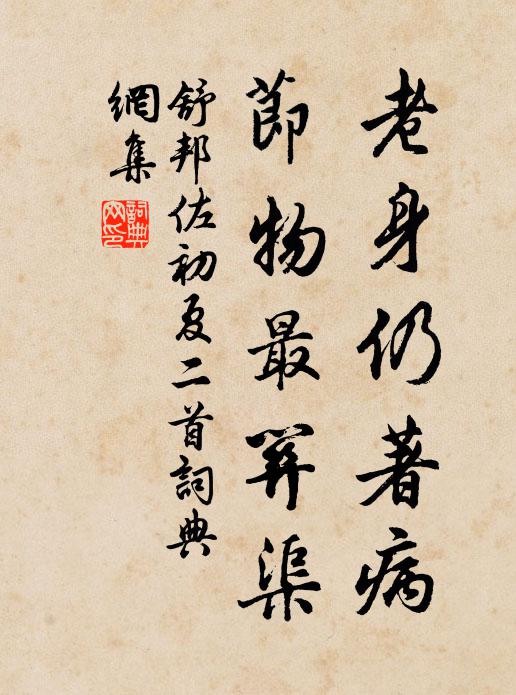 老身仍著病
節物最關渠
舒邦佐初夏二首詞典
網集
詞典
网印